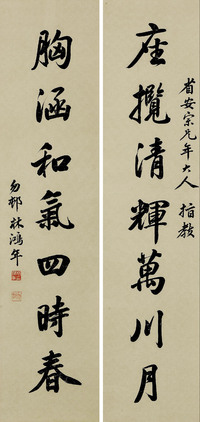 座攬清輝萬川月
省安宗兄年大人 指教
胸涵和氣四時春
勿邨林鴻年